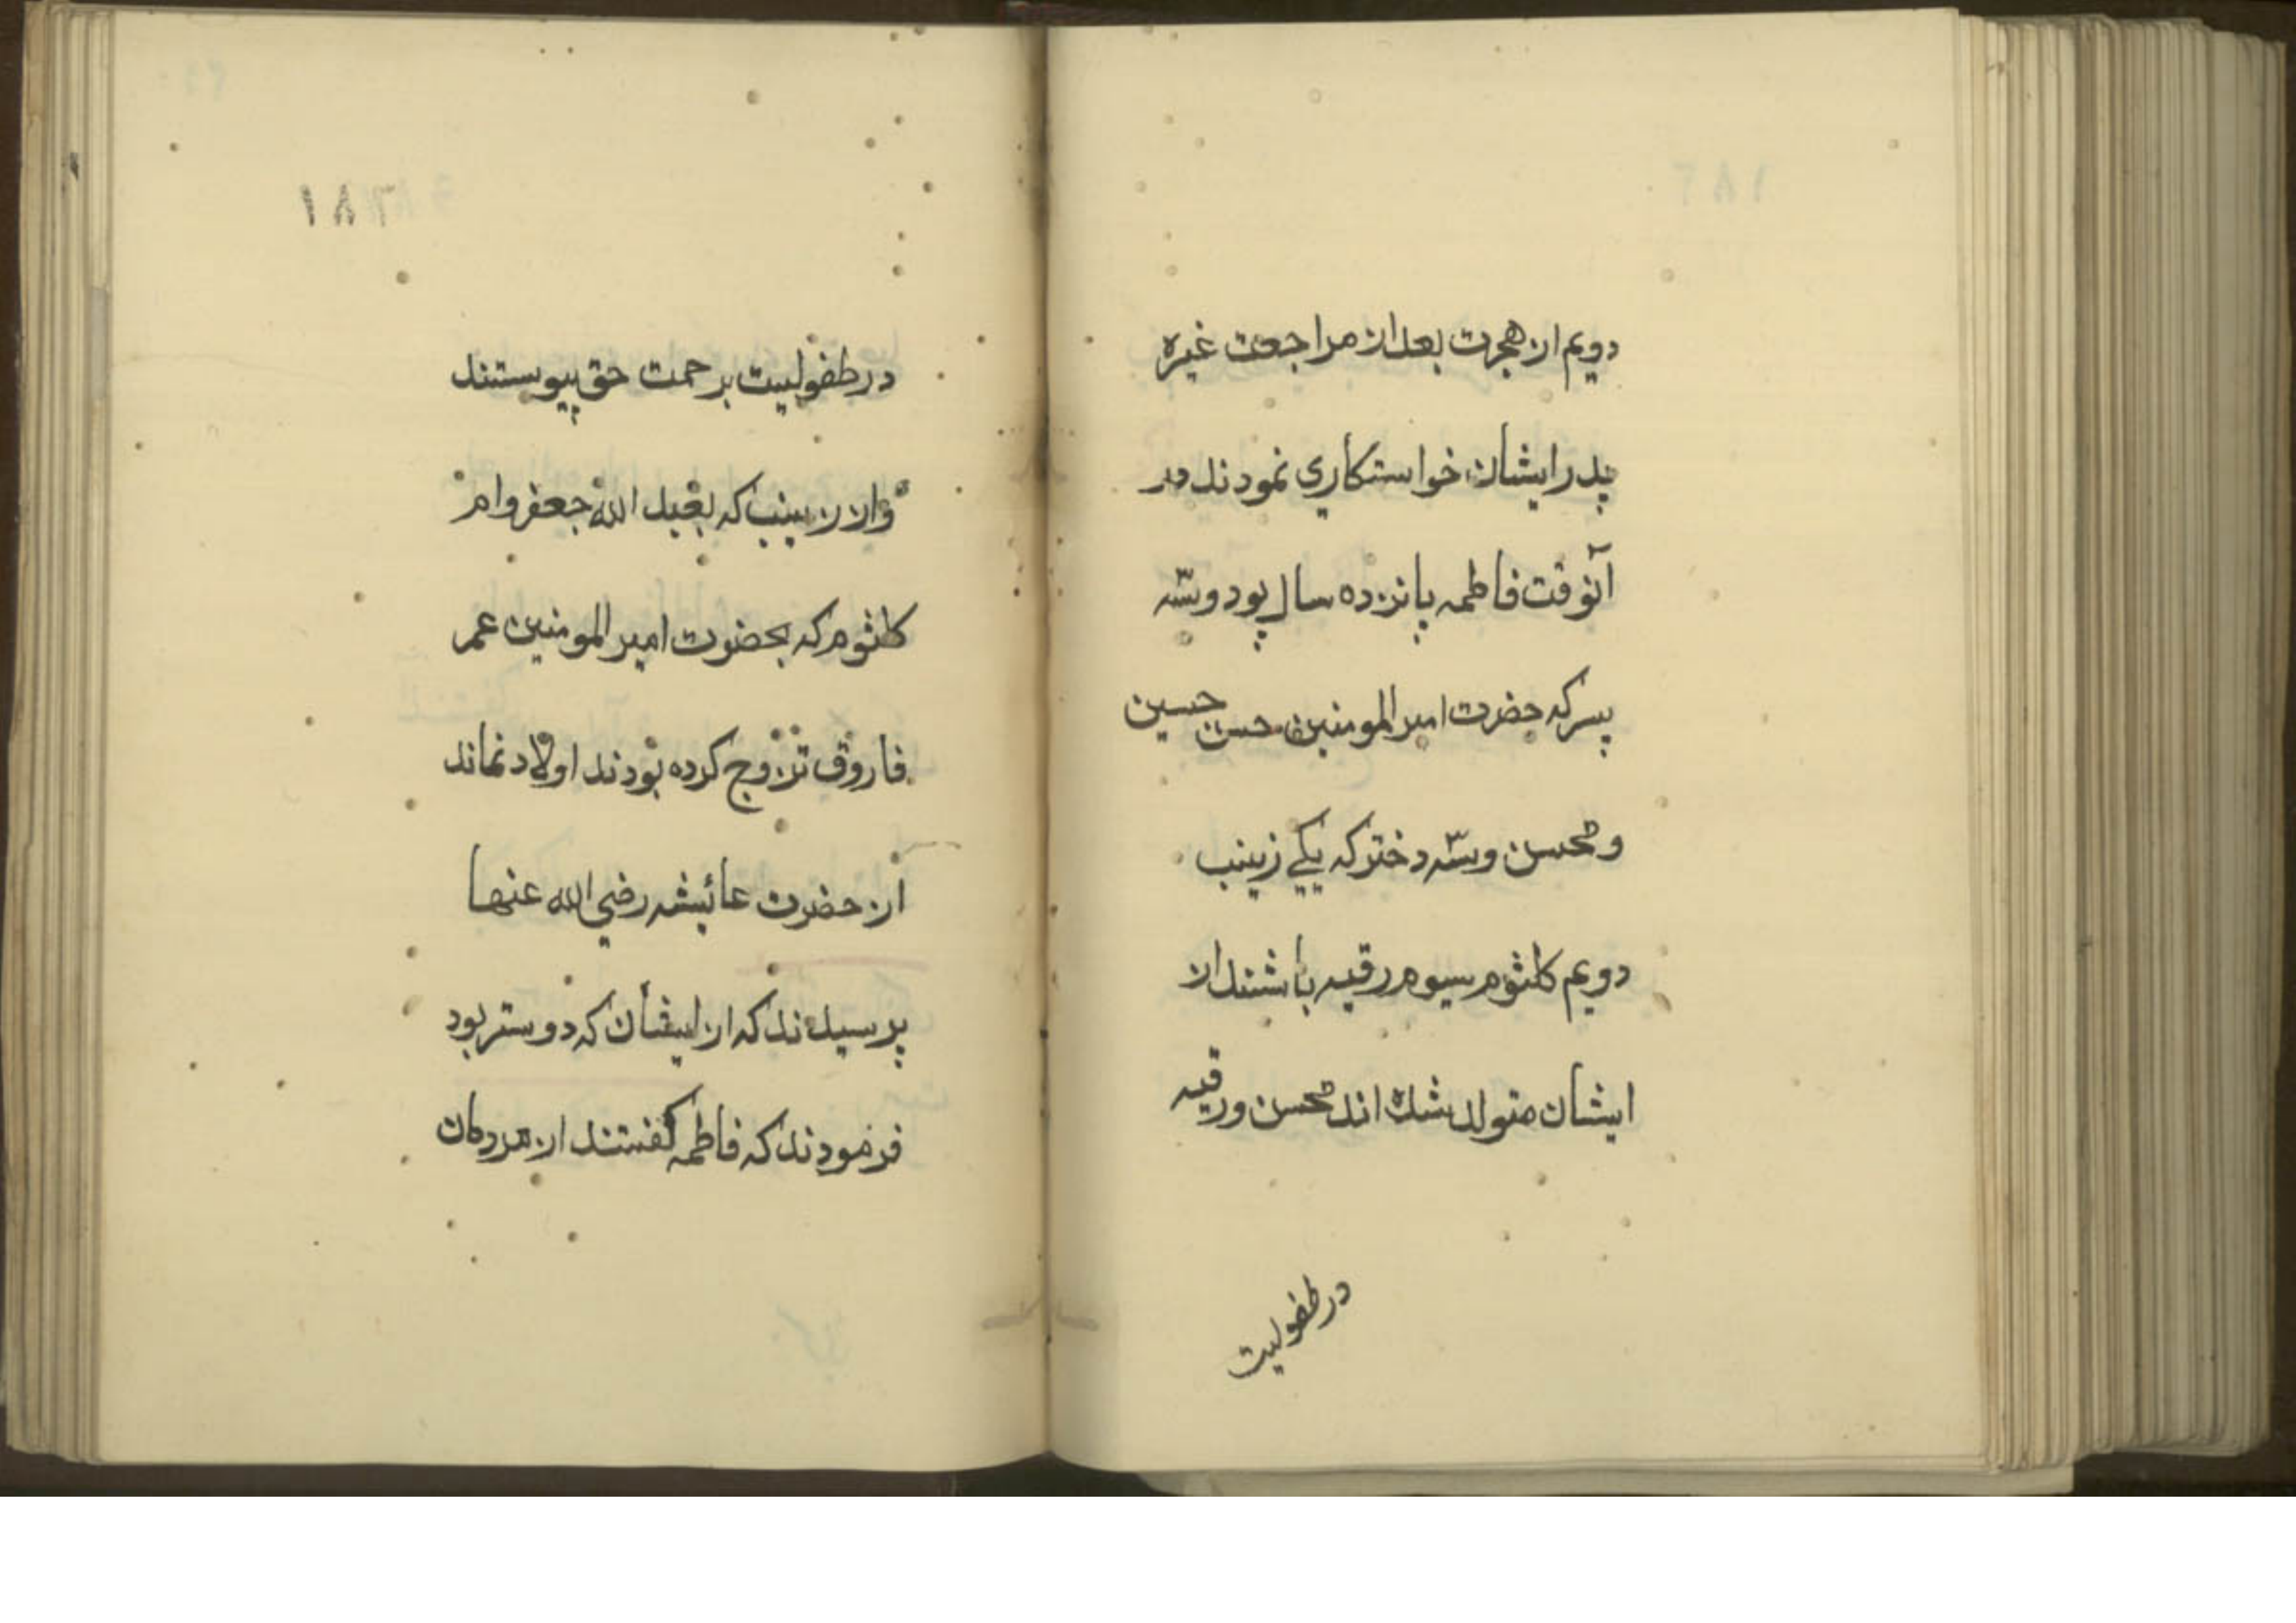 دویم از هجرت بعد از مراجعت غیره
پدر ایشان خواستکاری نمودند در
آنوقت فاطمه پانزده سال بود و سّه
پسر که حضرت امیر المومنین حسن حسین
و محسن و سّه دختر که یکے زینب
دویم کلثوم سیوم رقیه باشند از
ایشان متولد شده اند محسن و رقیه
در طفولیت
١٨٦
در طفولیت برحمت حق پیوستند
و از زینب که بعبد الله جعفر و ام
کلثوم که بحضرت امیر المومنین عمر
فاروق تزوج کرده بودند اولاد نماند
از حضرت عائیشه رضی الله عنها
پرسیدند که از ایشان که دوستر بود
فرمودند که فاطمه کفتند از مردمان